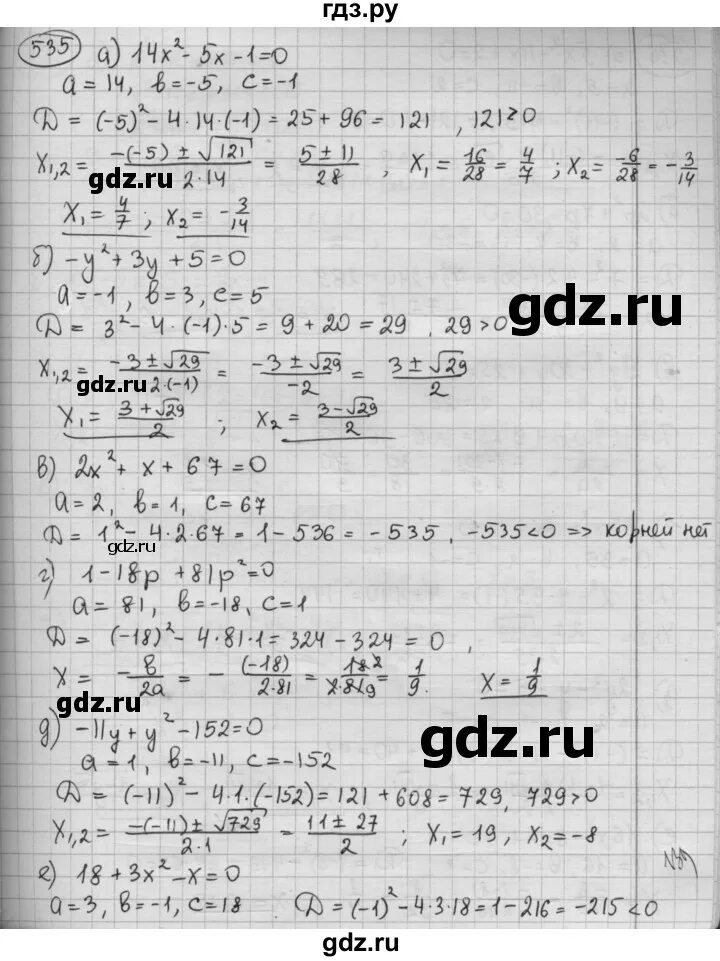 гдз.ру
535 а) 14x² - 5x - 1 = 0
a = 14, b = -5, c = -1
D = (-5)² - 4·14·(-1) = 25 + 96 = 121, 121 > 0
X₁,₂ = (-(-5) ± √121)/(2·14) = (5 ± 11)/28, X₁ = 16/28 = 4/7; X₂ = -6/28 = -3/14
gdz.ru
X₁ = 4/7; X₂ = -3/14
б) -y² + 3y + 5 = 0
a = -1, b = 3, c = 5
gdz.ru
D = 3² - 4·(-1)·5 = 9 + 20 = 29, 29 > 0
X₁,₂ = (-3 ± √29)/(2·(-1)) = (-3 ± √29)/(-2) = (3 ± √29)/2
gdz.ru
X₁ = (3 + √29)/2; X₂ = (3 - √29)/2
в) 2x² + x + 67 = 0
a = 2, b = 1, c = 67
D = 1² - 4·2·67 = 1 - 536 = -535, -535 < 0 => корней нет
gdz.ru
г) 1 - 18p + 81p² = 0
a = 81, b = -18, c = 1
D = (-18)² - 4·81·1 = 324 - 324 = 0,
X = -b/2a = -(-18)/(2·81) = 18 2/(2·81 9) = 1/9. X = 1/9
gdz.ru
д) -11y + y² - 152 = 0
a = 1, b = -11, c = -152
gdz.ru
D = (-11)² - 4·1·(-152) = 121 + 608 = 729, 729 > 0
X₁,₂ = (-(-11) ± √729)/(2·1) = (11 ± 27)/2; X₁ = 19, X₂ = -8
е) 18 + 3x² - x = 0
a = 3, b = -1, c = 18 D = (-1)² - 4·3·18 = 1 - 216 = -215 < 0
gdz.ru